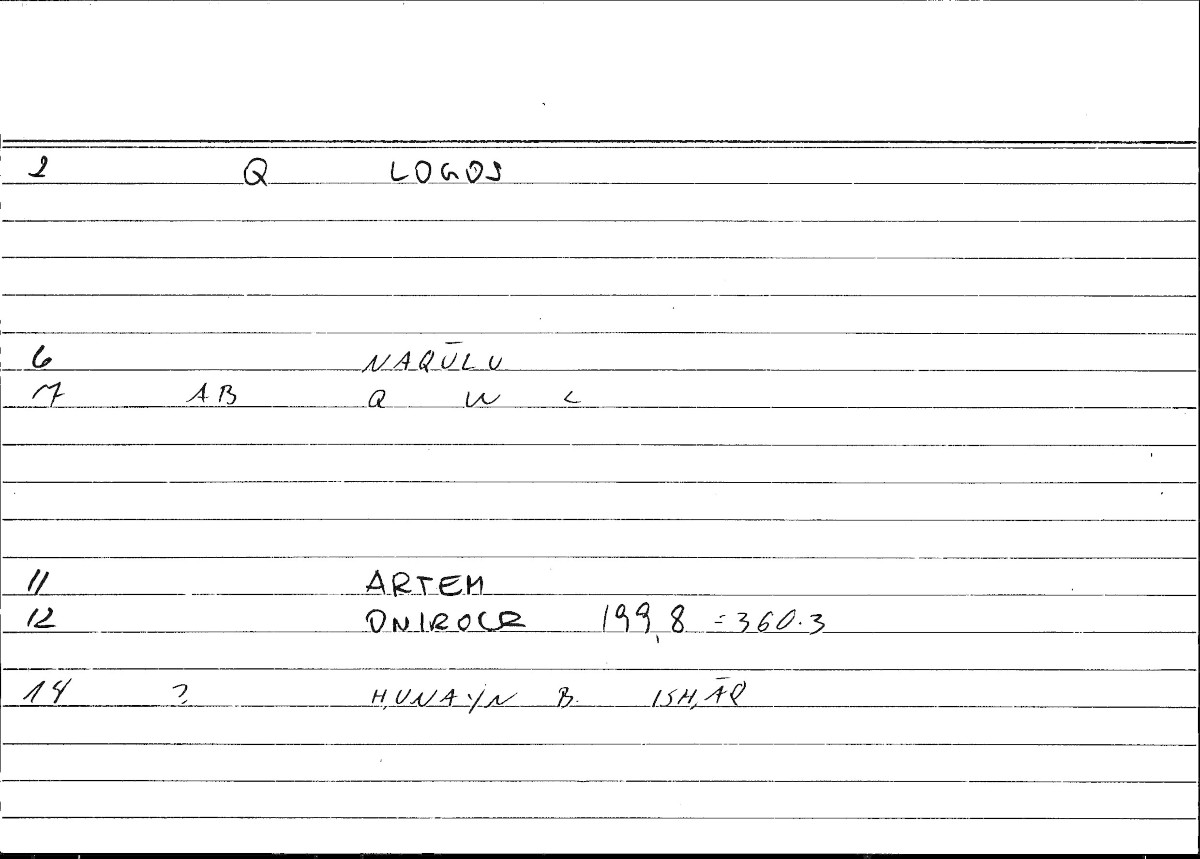 2 Q LOGOS
6 NAQŪLU
7 AB Q W L
11 ARTEM
12 ONIROCR 199,8 = 360.3
14 ? ḤUNAYN B. ISḤĀQ